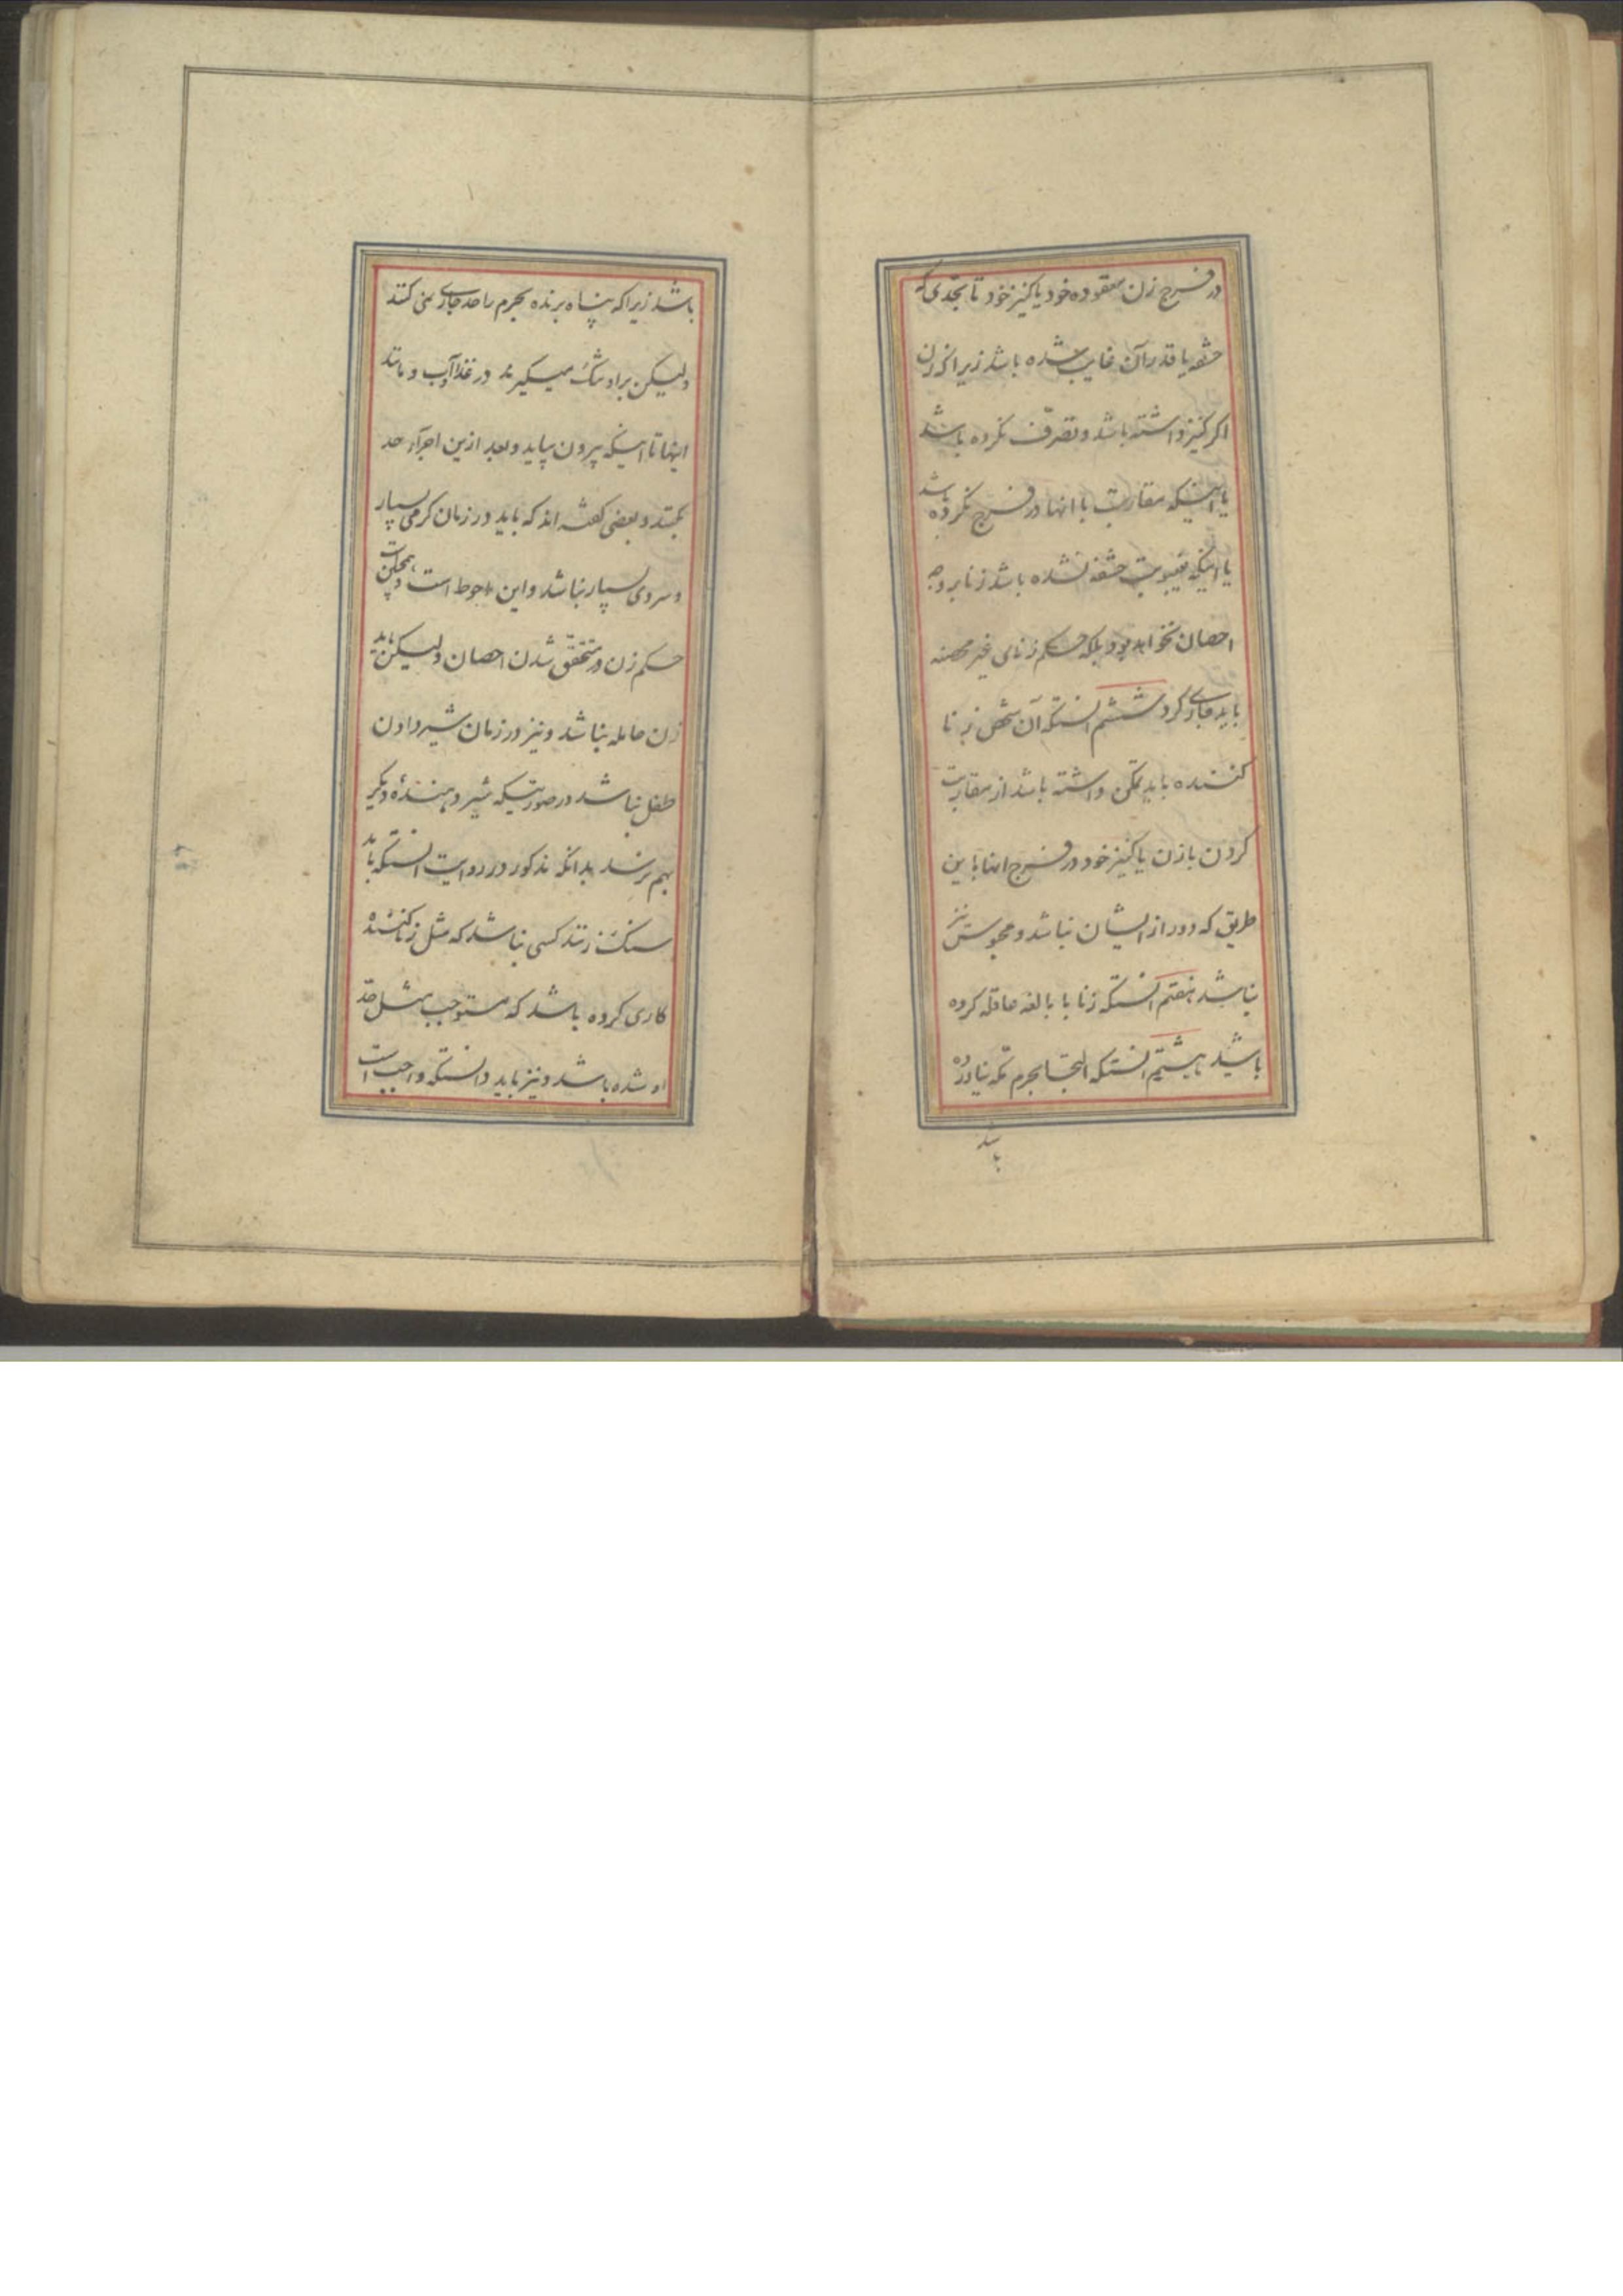 در فرج زن معقوده خود یا کنیز خود تا بحدی که
حشفه یا قدر آن غایب شده باشد زیرا که زن
اکر کنیز داشته باشد و تصرف نکرده باشد
یا اینکه مقاربت با انها در فرج نکرده باشد
یا اینکه غیبوبت حشفه نشده باشد زنا بر وجه
احصان نخواهد بود بلکه حکم زنای غیر محصنه
باید جاری کرد ششم انستکه آن شخص زنا
کننده باید تمکن داشته باشد از مقاربت
کردن با زن یا کنیز خود در فرج انها باین
طریق که دور از ایشان نباشد و محبوس نیز
نباشد هفتم انستکه زنا با بالغه عاقله کرده
باشد هیشتم انستکه التجا بحرم مکه نیاورده
باشد
باشد زیرا که پناه برنده بحرم را حد جاری نمی کنند
ولیکن بر او تنک میکیرند در غذا و آب و مانند
اینها تا اینکه بیرون بیاید و بعد ازین اجرآء حد
بکنند و بعضی کفته اند که باید در زمان کرمی بسیار
و سردی بسیار نباشد و این احوط است و همچنین است
حکم زن در متحقق شدن احصان ولیکن باید
زن حامله نباشد و نیز در زمان شیر دادن
طفل نباشد در صورتیکه شیر دهندهٔ دیکر
بهم نرسد بدانکه مذکور در روایت انستکه باید
سنک زنند کسی نباشد که مثل زنا کننده
کاری کرده باشد که مستوجب مثل حد
او شده باشد و نیز باید دانستکه واجب است